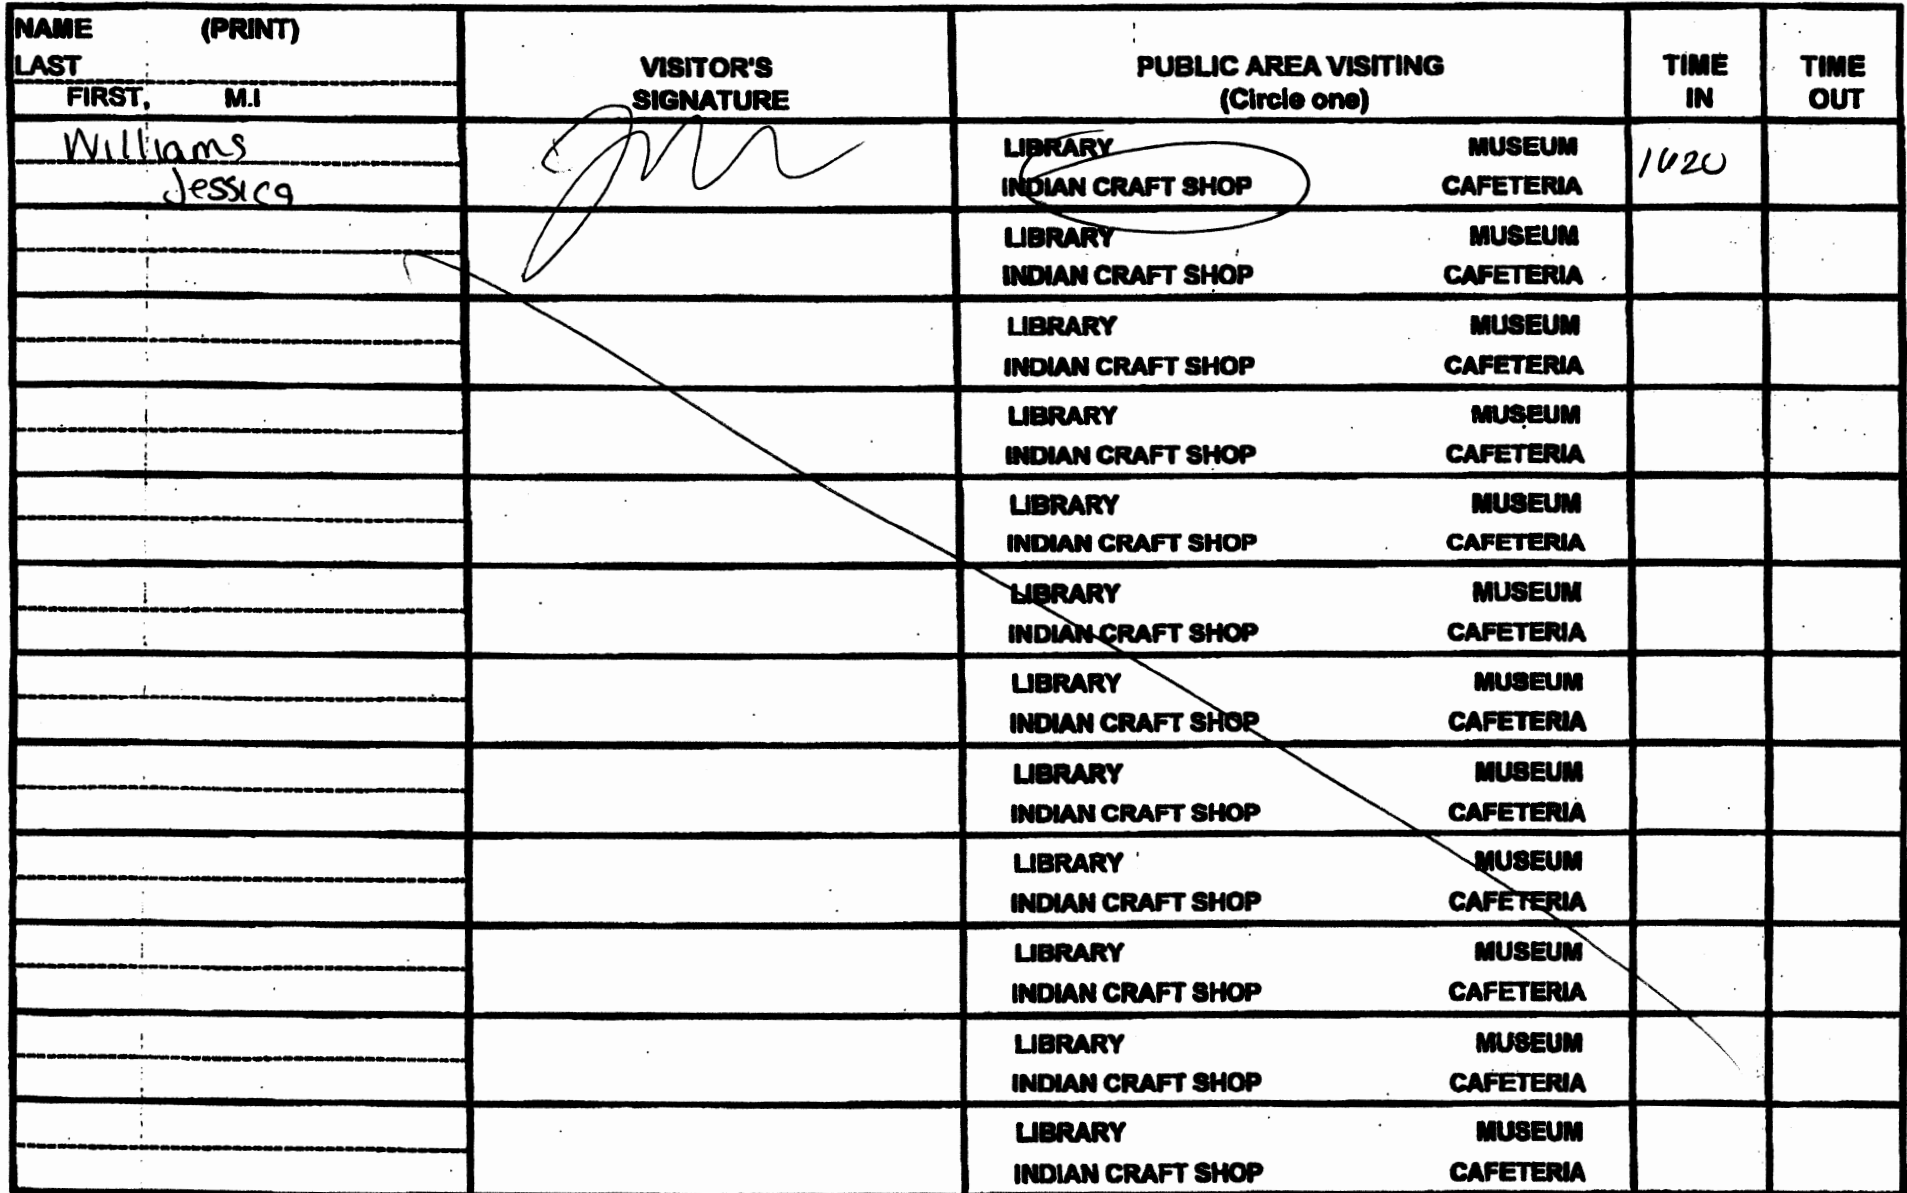 NAME (PRINT)
LAST
FIRST, M.I
VISITOR'S
SIGNATURE
PUBLIC AREA VISITING
(Circle one)
TIME
IN
TIME
OUT
Williams
Jessica
LIBRARY MUSEUM
INDIAN CRAFT SHOP CAFETERIA
1620
LIBRARY MUSEUM
INDIAN CRAFT SHOP CAFETERIA
LIBRARY MUSEUM
INDIAN CRAFT SHOP CAFETERIA
LIBRARY MUSEUM
INDIAN CRAFT SHOP CAFETERIA
LIBRARY MUSEUM
INDIAN CRAFT SHOP CAFETERIA
LIBRARY MUSEUM
INDIAN CRAFT SHOP CAFETERIA
LIBRARY MUSEUM
INDIAN CRAFT SHOP CAFETERIA
LIBRARY MUSEUM
INDIAN CRAFT SHOP CAFETERIA
LIBRARY MUSEUM
INDIAN CRAFT SHOP CAFETERIA
LIBRARY MUSEUM
INDIAN CRAFT SHOP CAFETERIA
LIBRARY MUSEUM
INDIAN CRAFT SHOP CAFETERIA
LIBRARY MUSEUM
INDIAN CRAFT SHOP CAFETERIA